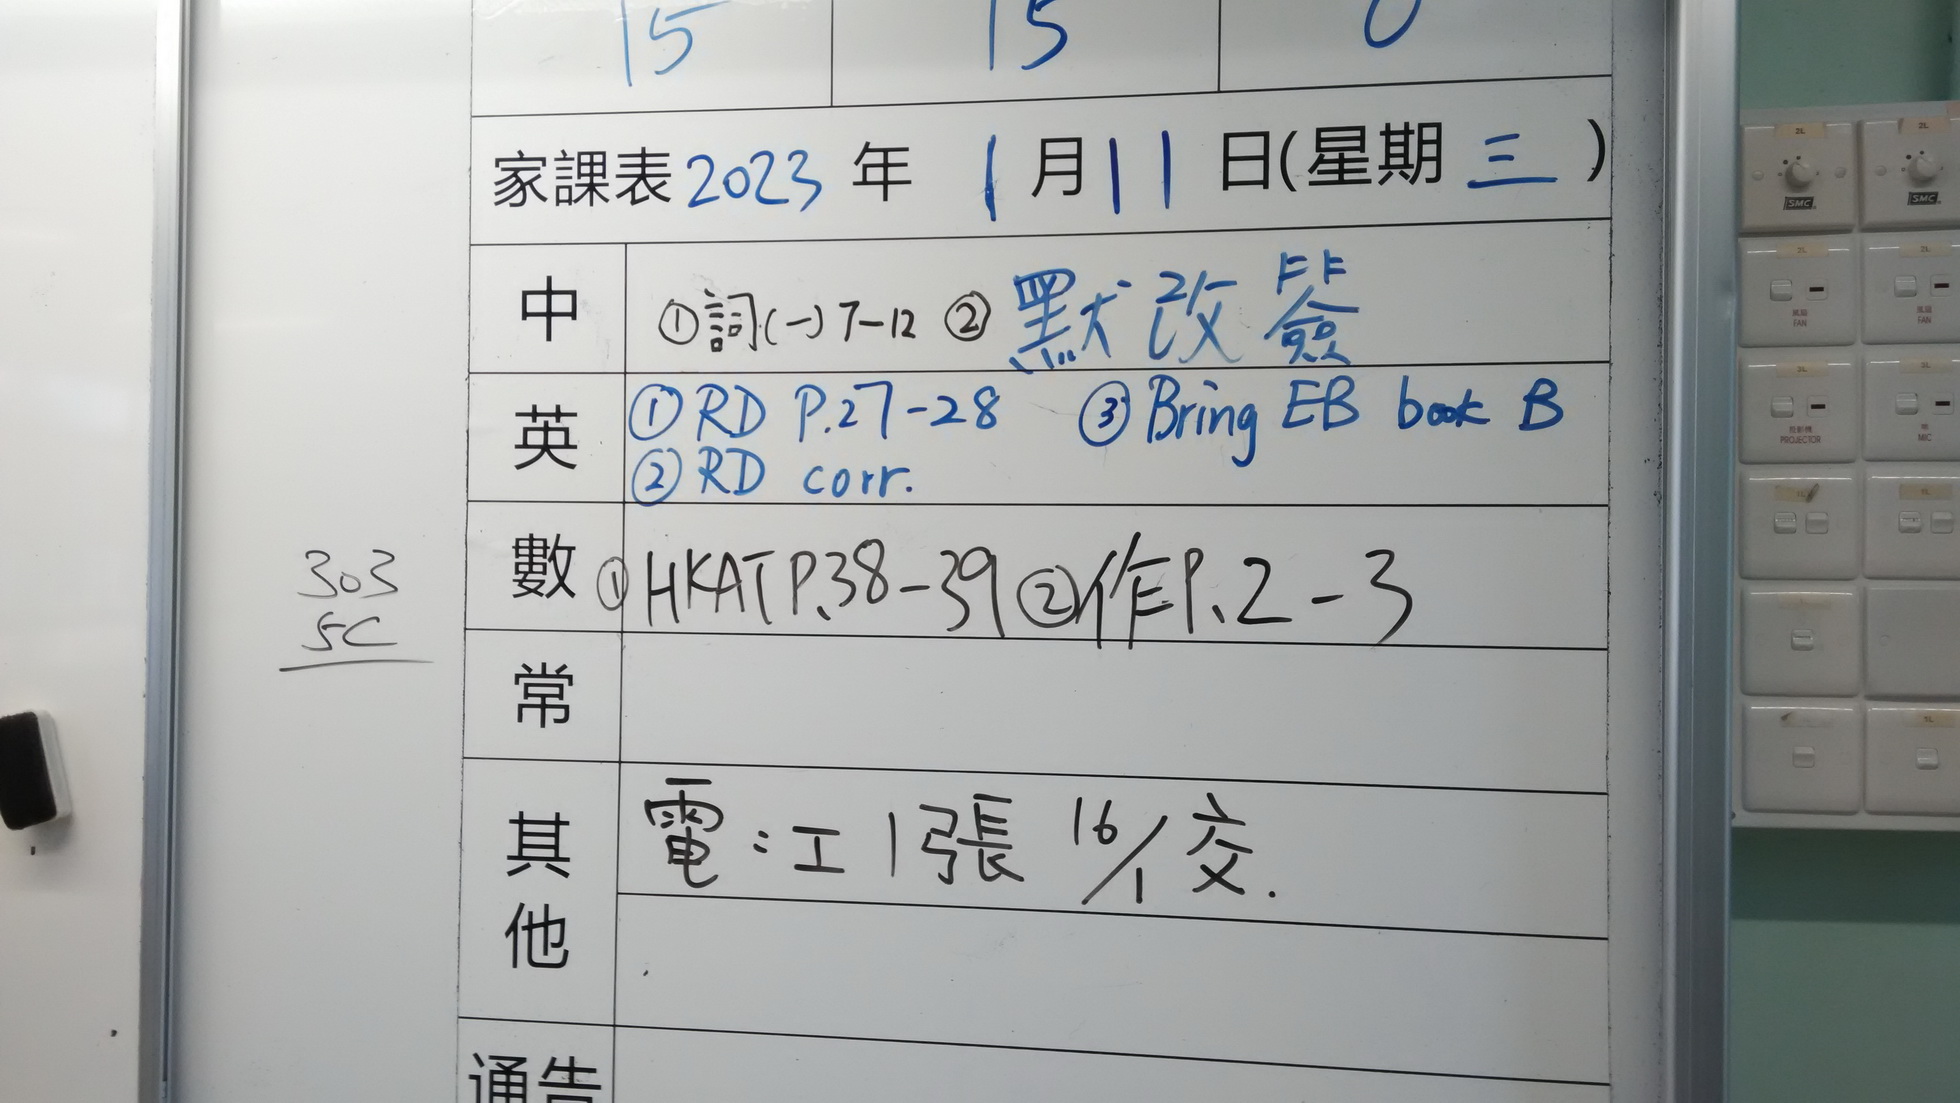 15 15 0
家課表 2023 年 1 月 11 日(星期 三 )
中 ①詞(一) 7-12 ② 默改簽
英 ① RD P.27-28 ③ Bring EB book B
② RD corr.
數 ① HKAT P.38-39 ② 作P.2-3
303
5C
常
其他 電:工1張 16/1交.
通告
SMC SMC
2L 2L
風扇 FAN
風扇 FAN
2L 2L
投影機 PROJECTOR
MIC
1L